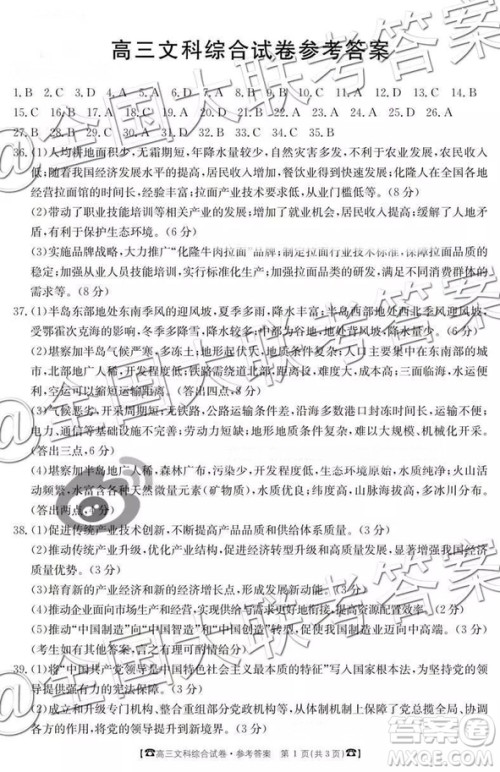 高三文科综合试卷参考答案
1.B 2.C 3.D 4.A 5.D 6.C 7.D 8.B 9.D 10.B 11.C 12.B 13.B 14.C
15.C 16.B 17.A 18.D 19.D 20.A 21.D 22.C 23.A 24.A 25.A 26.A
27.B 28.B 29.C 30.A 31.D 32.B 33.B 34.C 35.C
36.(1)人均耕地面积少,无霜期短,年降水量较少,自然灾害多发,不利于农业发展,农民收入
低;随着我国经济发展水平的提高,居民收入提高,餐饮业得到快速发展;化隆人在全国各地
经营拉面馆的时间长,经验丰富;拉面产业技术要求低,从业门槛低等。(8分)
(2)带动了职业技能培训等相关产业的发展;增加就业机会,居民收入提高,缓解了人地矛
盾,有利于保护生态环境。(6分)
(3)实施品牌战略,大力推广“化隆牛肉拉面”品牌;制定拉面行业技术标准,推动行业发
展;加强从业人员技能培训,实行规模化、集团化经营;开发新产品,满足不同消费群体的
需求等。(8分)
37.(1)半岛东部地处东南季风的迎风坡,夏季多雨,降水丰富;半岛西部地处西北季风迎风坡,
受鄂霍次克海的影响,冬季多雪,降水较多;中部地处背风坡,降水较少。(6分)
(2)堪察加半岛气候严寒,多冻土,地形崎岖,修建铁路困难;人口主要集中在东南部的城
市,北部地广人稀,客货运需求量小;铁路需绕陆地,距离长,成本高;三面临海,水运便
利,空运可以缩短运输距离。(6分)
(3)气候恶劣,开采周期短;无铁路,公路运输条件差,沿海多数港口封冻时间长;供电、供
水、通信等基础设施不完善;劳动力短缺;环境脆弱,不能大规模、机械化开采。
(答出三点,6分)
(4)堪察加半岛地广人稀,森林广布,污染少,开发程度低,生态环境原始,自然环境好;火山活动
频繁,水富含多种微量元素,地热资源丰富;纬度高,山脉海拔高,多冰川分布。
(答出两点,6分)
38.(1)促进传统产业技术创新,不断提高产品品质和供给体系质量。(3分)
(2)推动传统产业升级,优化产业结构,促进经济转型升级和高质量发展,提高我国经济发展
质量优势。(3分)
(3)培育新的产业经济和新的经济增长点,增强发展新动能。(3分)
(4)推动移动互联网与生产交易相融合,增强实体经济竞争力。(2分)
(5)推动“中国制造”向“中国智造”和“中国创造”转型,促进我国产业迈向中高端。(3分)
39.(1)将“中国共产党领导是中国特色社会主义最本质的特征”写入国家根本法,为坚持党的
领导提供强有力的宪法保障。(3分)
(2)优化政府组成部门,整合重组部分党政部门,构建系统完备的党和国家机构职能体系,将
党的领导提升到新高度。(3分)
☎高三文科综合试卷·参考答案 第 1 页(共 3 页)☎
@全国大联考答案
@全国大联考答案
@全国大联考答案